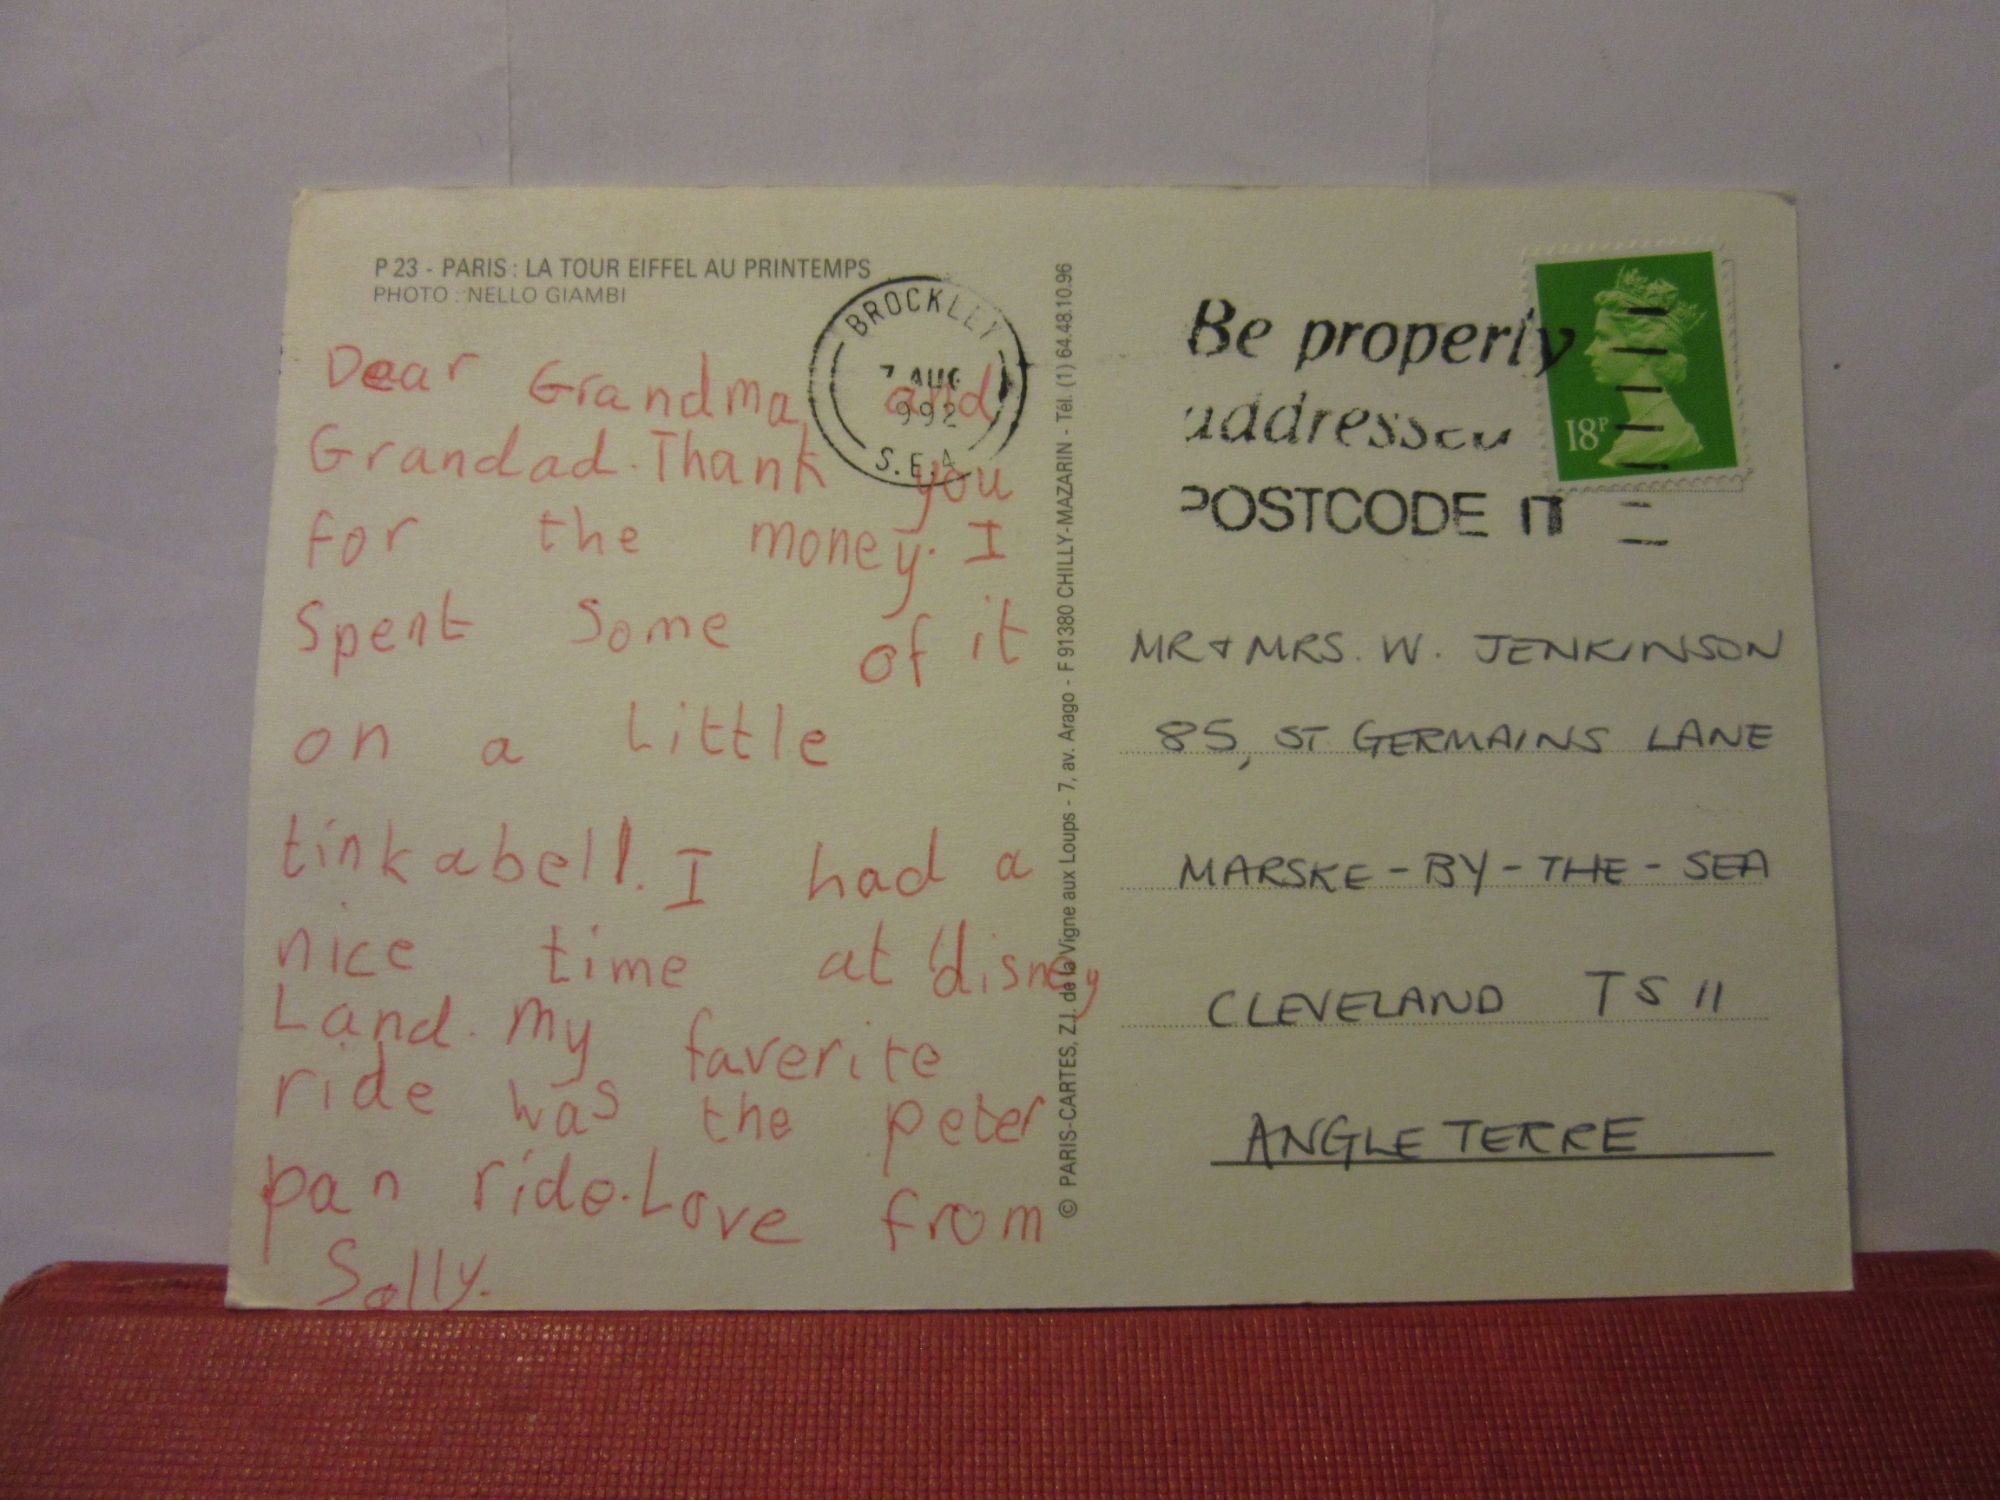 P 23 - PARIS : LA TOUR EIFFEL AU PRINTEMPS
PHOTO : NELLO GIAMBI
Dear Grandma and
Grandad. Thank you
for the money. I
Spent Some of it
on a little
tinkabell. I had a
nice time at disney
Land. My faverite
ride was the peter
pan ride. Love from
Sally.
BROCKLEY
7 AUG
992
S.E.4
© PARIS-CARTES, Z.I. de la Vigne aux Loups - 7, av. Arago - F 91380 CHILLY-MAZARIN - Tél. (1) 64.48.10.96
Be properly
addressed
POSTCODE IT
18P
MR & MRS. W. JENKINSON
85, ST GERMAINS LANE
MARSKE-BY-THE-SEA
CLEVELAND TS 11
ANGLETERRE